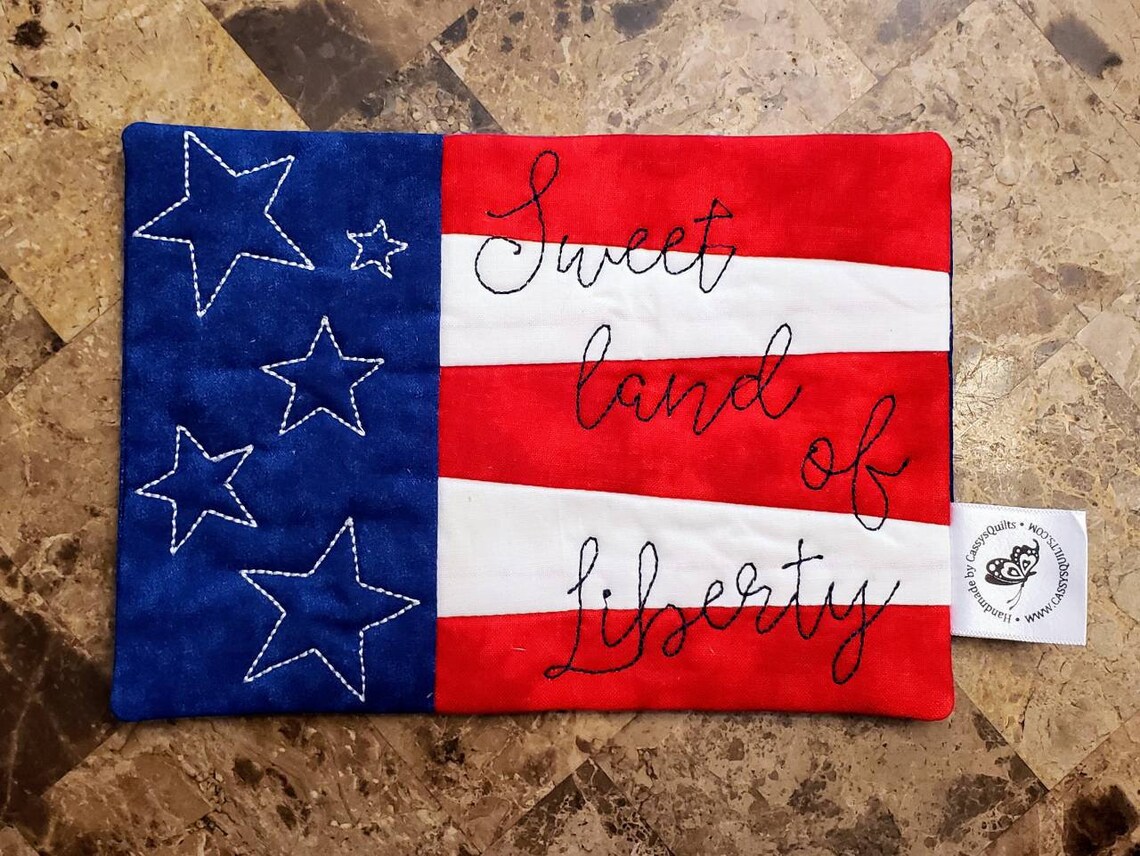 Sweet
land
of
Liberty
Handmade by CassysQuilts • www.CASSYSQUILTS.COM •